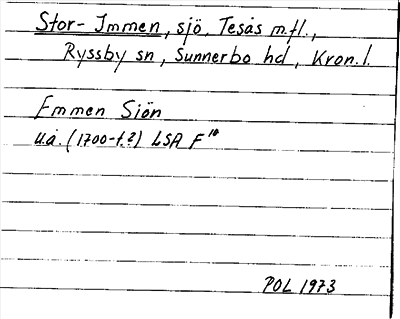 Stor-Immen, sjö, Tesås m.fl.,
Ryssby sn, Sunnerbo hd, Kron.l.
Emmen Siön
u.å. (1700-t.?) LSA F 10
POL 1973